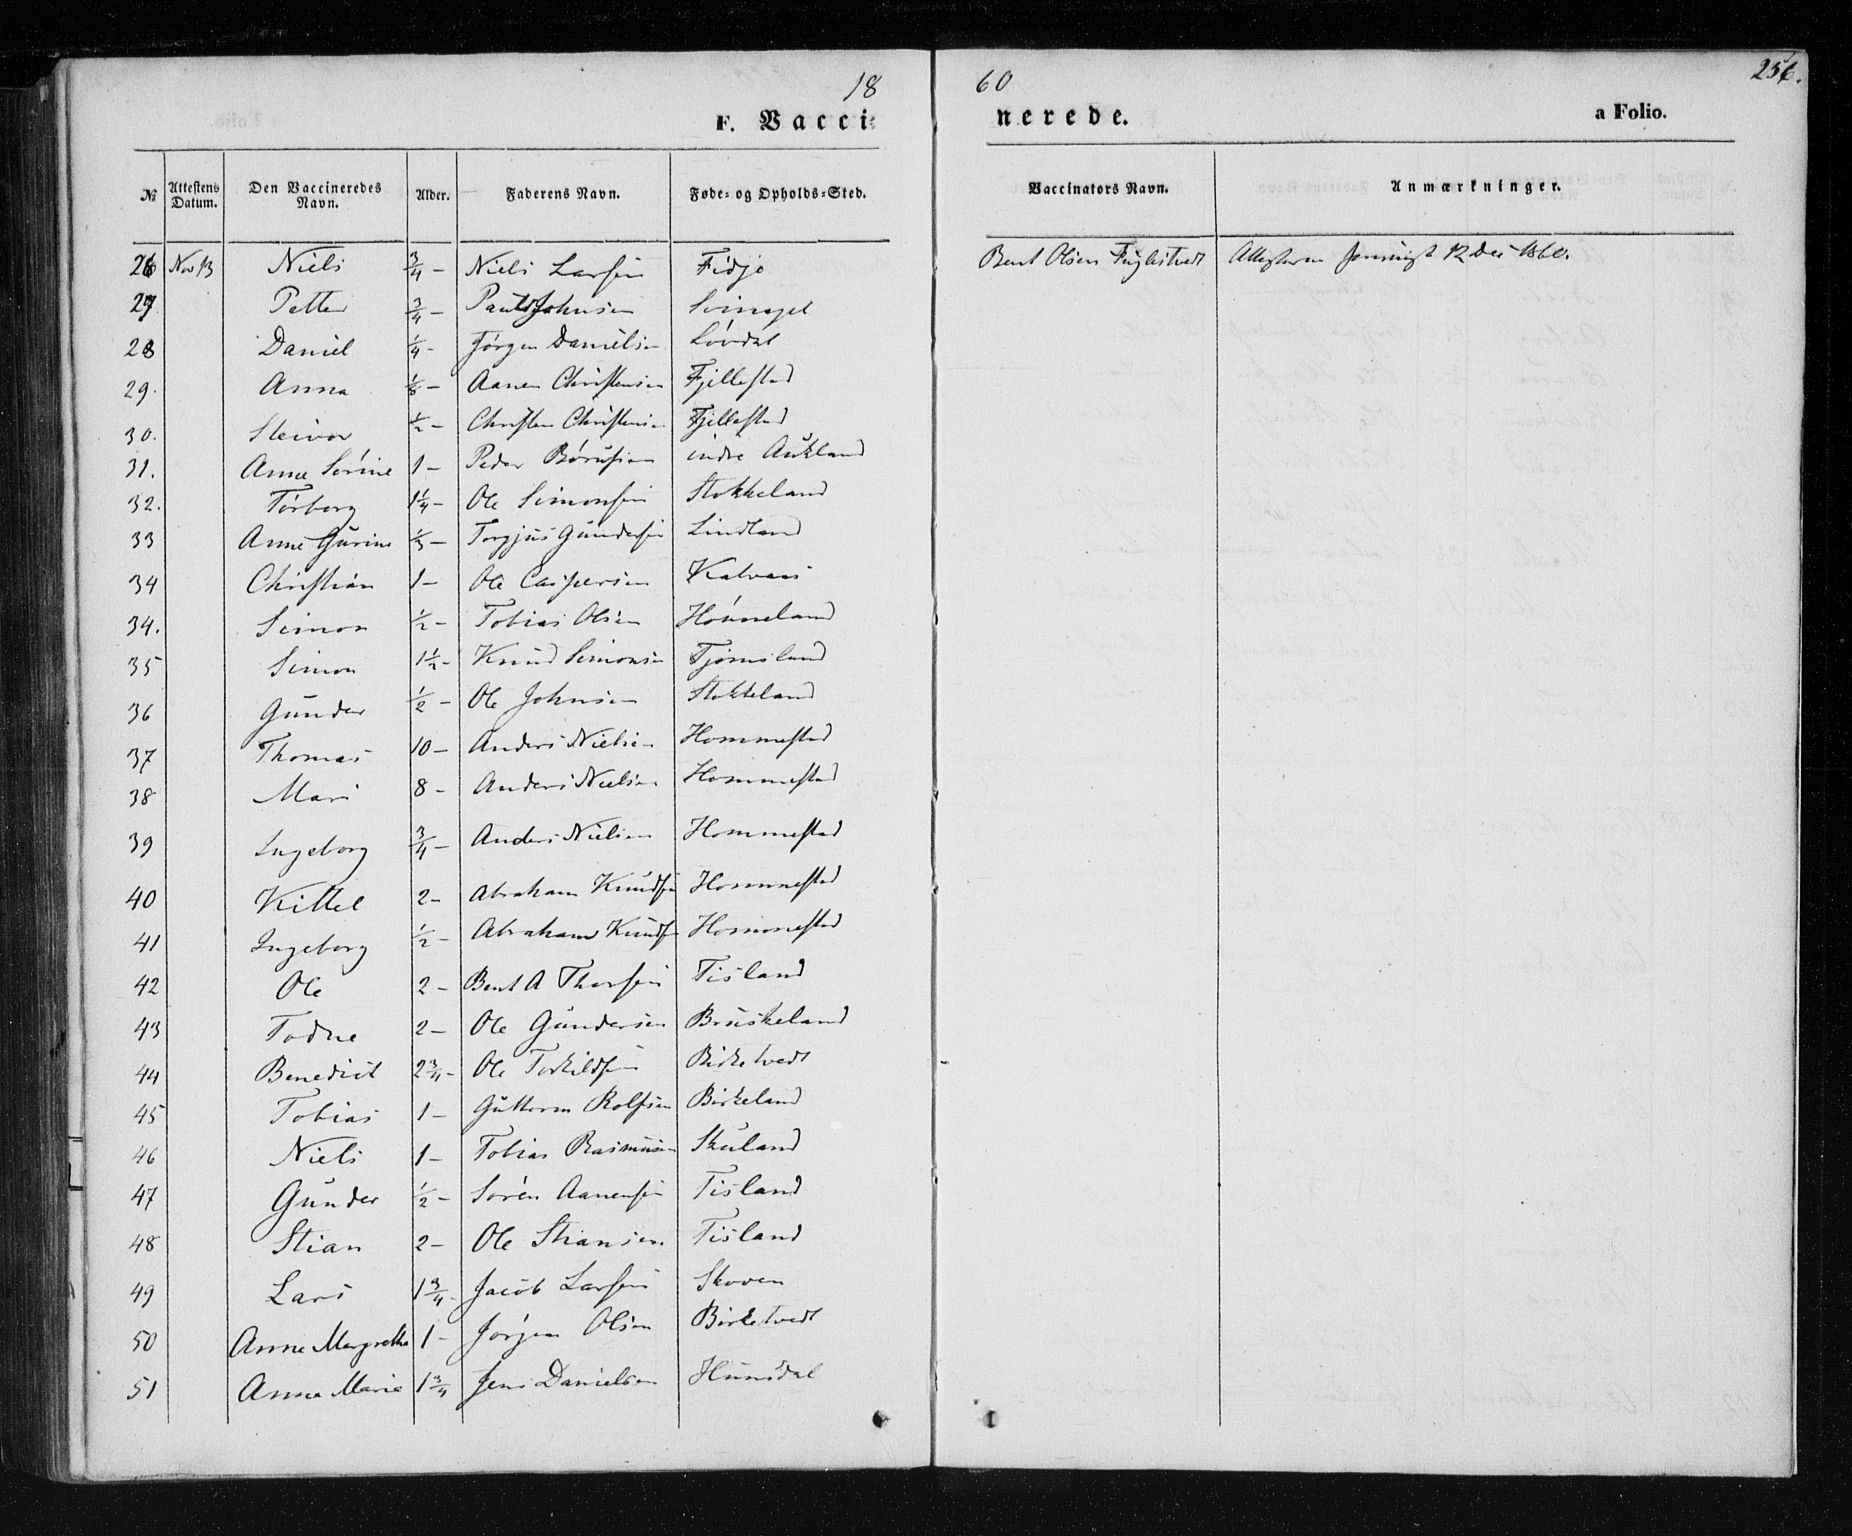 18 60
256.
F. Vaccinerede. a Folio.
№ Attestens Datum. Den Vaccineredes Navn. Alder. Faderens Navn. Føde- og Opholds-Sted. Vaccinators Navn. Anmærkninger.
26 Nov 13 Niels 3/4 – Niels Larsen Fidje Bent Olsen Fuglestvedt 12 Dec 1860.
27 Petter 3/4 – Paul Johnsen
28 Daniel 1/4 – Jörgen Danielsen Lövdal
29. Anna Aanen Christensen Fjellestad
30. Steinor 1/2 – Christen Christensen Fjellestad
31. Anne Sörine 1 – Peder Börüsien indre Aukland
32. Torborg 1 1/4 – Ole Simonsen Stokkeland
33 Anne Gurine 1/3 – Torgjus Gundersen Lindland
34 Christian 1 – Ole Caspersen
34. Simon 1/2 – Tobias Olsen Hönneland
35 Simon 1 1/2 – Knud Simonsen Tjomsland
36 Gunder 1/2 – Ole Johnsen Stokkeland
37 Thomas 10 – Anders Nielsen Hommestad
38 Mari 8 – Anders Nielsen Hommestad
39 Ingeborg 3/4 – Anders Nielsen Hommestad
40 Kittel 2 – Abraham Knudsen Hommestad
41 Ingeborg 1/2 – Abraham Knudsen Hommestad
42 Ole 2 – Bent A Thorsen Tisland
43 Todne 2 – Ole Gundersen Bruskeland
44 Benedict 2 3/4 – Ole Torkildsen Birketvedt
45 Tobias 1 – Guttorm Rolfsen Birkeland
46 Niels 1 – Tobias Rasmusen Skuland
47 Gunder 1/2 – Sorén Aanensen Tisland
48 Stian 2 – Ole Stiansen Tisland
49 Lars 1 3/4 – Jacob Larsen Skoven
50 Anne Margrethe 1 – Jörgen Olsen Birketvedt
51 Anne Marie 1 3/4 Jens Danielsen Hunsdal